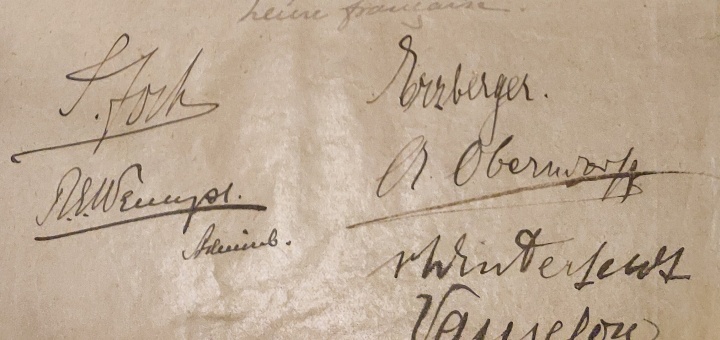 heure française.
F. Foch
Erzberger.
R.E. Wemyss.
Admiral.
A. Oberndorff
v Winterfeldt
Vanselow